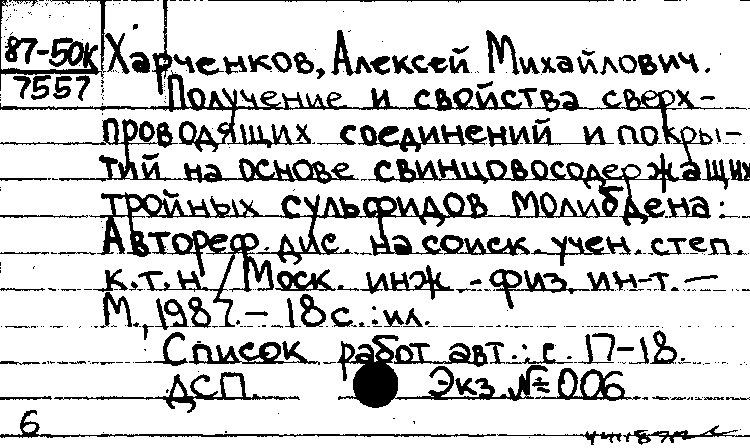 87-50К Харченков, Алексей Михайлович.
7557 Получение и свойства сверх-
проводящих соединений и покры-
тий на основе свинцовосодержащих
тройных сульфидов молибдена:
Автореф. дис. на соиск. учен. степ.
к.т.н. / Моск. инж.-физ. ин-т. —
М., 1987. — 18 с. : ил.
Список работ авт.: с. 17-18.
ДСП. Экз. № 006
6